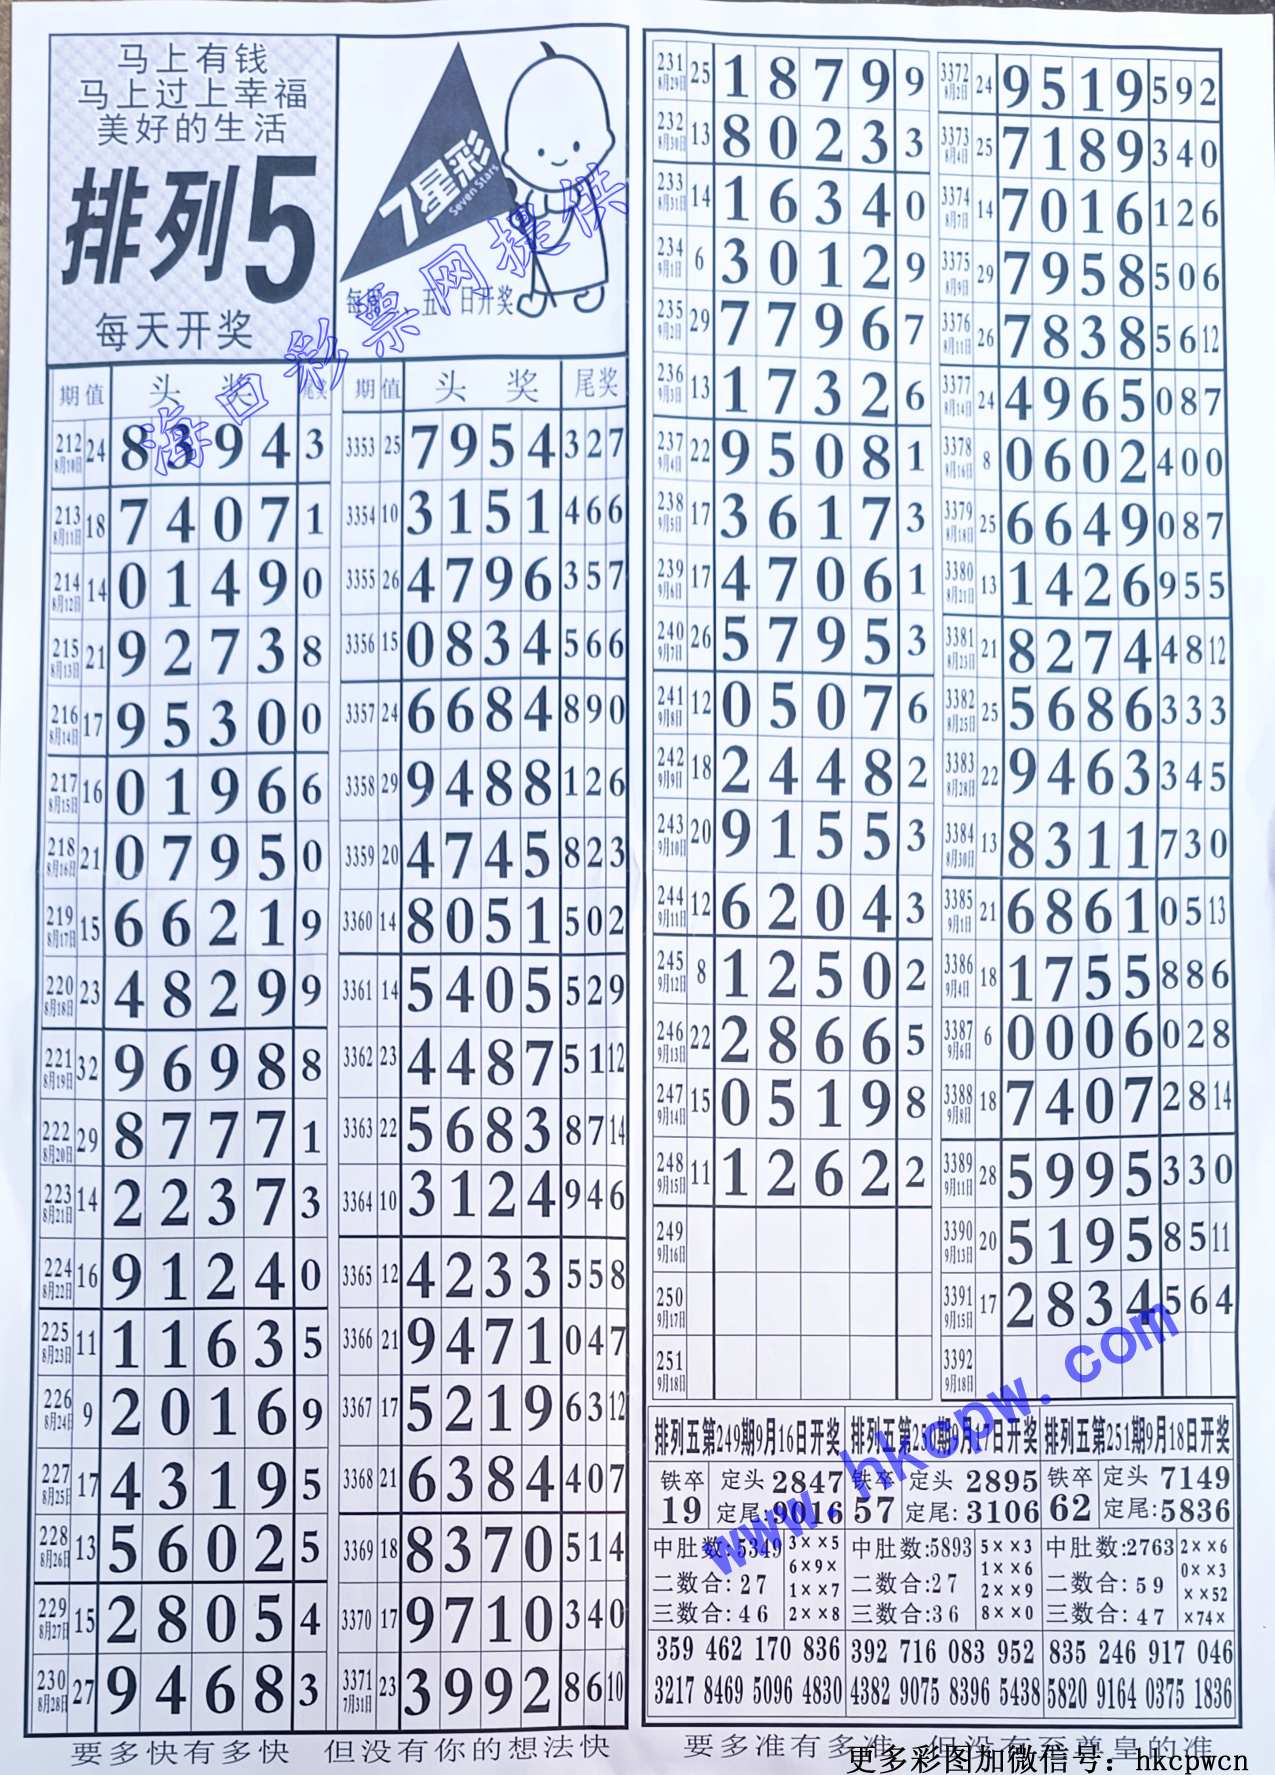 马上有钱
马上过上幸福
美好的生活
排列5
每天开奖
7星彩
Seven Stars
每 五 日开奖
海口彩票网提供
期 值 头 奖 尾奖
212 8月10日 24 8 3 9 4 3
213 8月11日 18 7 4 0 7 1
214 8月12日 14 0 1 4 9 0
215 8月13日 21 9 2 7 3 8
216 8月14日 17 9 5 3 0 0
217 8月15日 16 0 1 9 6 6
218 8月16日 21 0 7 9 5 0
219 8月17日 15 6 6 2 1 9
220 8月18日 23 4 8 2 9 9
221 8月19日 32 9 6 9 8 8
222 8月20日 29 8 7 7 7 1
223 8月21日 14 2 2 3 7 3
224 8月22日 16 9 1 2 4 0
225 8月23日 11 1 1 6 3 5
226 8月24日 9 2 0 1 6 9
227 8月25日 17 4 3 1 9 5
228 8月26日 13 5 6 0 2 5
229 8月27日 15 2 8 0 5 4
230 8月28日 27 9 4 6 8 3
期 值 头 奖 尾奖
3353 25 7 9 5 4 3 2 7
3354 10 3 1 5 1 4 6 6
3355 26 4 7 9 6 3 5 7
3356 15 0 8 3 4 5 6 6
3357 24 6 6 8 4 8 9 0
3358 29 9 4 8 8 1 2 6
3359 20 4 7 4 5 8 2 3
3360 14 8 0 5 1 5 0 2
3361 14 5 4 0 5 5 2 9
3362 23 4 4 8 7 5 1 12
3363 22 5 6 8 3 8 7 14
3364 10 3 1 2 4 9 4 6
3365 12 4 2 3 3 5 5 8
3366 21 9 4 7 1 0 4 7
3367 17 5 2 1 9 6 3 12
3368 21 6 3 8 4 4 0 7
3369 18 8 3 7 0 5 1 4
3370 17 9 7 1 0 3 4 0
3371 7月31日 23 3 9 9 2 8 6 10
231 8月29日 25 1 8 7 9 9
232 8月30日 13 8 0 2 3 3
233 8月31日 14 1 6 3 4 0
234 9月1日 6 3 0 1 2 9
235 9月2日 29 7 7 9 6 7
236 9月3日 13 1 7 3 2 6
237 9月4日 22 9 5 0 8 1
238 9月5日 17 3 6 1 7 3
239 9月6日 17 4 7 0 6 1
240 9月7日 26 5 7 9 5 3
241 9月8日 12 0 5 0 7 6
242 9月9日 18 2 4 4 8 2
243 9月10日 20 9 1 5 5 3
244 9月11日 12 6 2 0 4 3
245 9月12日 8 1 2 5 0 2
246 9月13日 22 2 8 6 6 5
247 9月14日 15 0 5 1 9 8
248 9月15日 11 1 2 6 2 2
249 9月16日
250 9月17日
251 9月18日
3372 8月2日 24 9 5 1 9 5 9 2
3373 8月4日 25 7 1 8 9 3 4 0
3374 8月7日 14 7 0 1 6 1 2 6
3375 8月9日 29 7 9 5 8 5 0 6
3376 8月11日 26 7 8 3 8 5 6 12
3377 8月14日 24 4 9 6 5 0 8 7
3378 8月16日 8 0 6 0 2 4 0 0
3379 8月18日 25 6 6 4 9 0 8 7
3380 8月21日 13 1 4 2 6 9 5 5
3381 8月23日 21 8 2 7 4 4 8 12
3382 8月25日 25 5 6 8 6 3 3 3
3383 8月28日 22 9 4 6 3 3 4 5
3384 8月30日 13 8 3 1 1 7 3 0
3385 9月1日 21 6 8 6 1 0 5 13
3386 9月4日 18 1 7 5 5 8 8 6
3387 9月6日 6 0 0 0 6 0 2 8
3388 9月8日 18 7 4 0 7 2 8 14
3389 9月11日 28 5 9 9 5 3 3 0
3390 9月13日 20 5 1 9 5 8 5 11
3391 9月15日 17 2 8 3 4 5 6 4
3392 9月18日
排列五第249期9月16日开奖
铁卒 19 定头 2847
定尾:9016
中肚数:5349
二数合:27
三数合:46
3××5
6×9×
1××7
2××8
359 462 170 836
3217 8469 5096 4830
排列五第250期9月17日开奖
铁卒 57 定头 2895
定尾:3106
中肚数:5893
二数合:27
三数合:36
5××3
1××6
2××9
8××0
392 716 083 952
4382 9075 8396 5438
排列五第251期9月18日开奖
铁卒 62 定头 7149
定尾:5836
中肚数:2763
二数合:59
三数合:47
2××6
0××3
××52
×74×
835 246 917 046
5820 9164 0375 1836
www.hkcpw.com
要多快有多快 但没有你的想法快
要多准有多准 但没有至尊皇的准
更多彩图加微信号：hkcpwcn